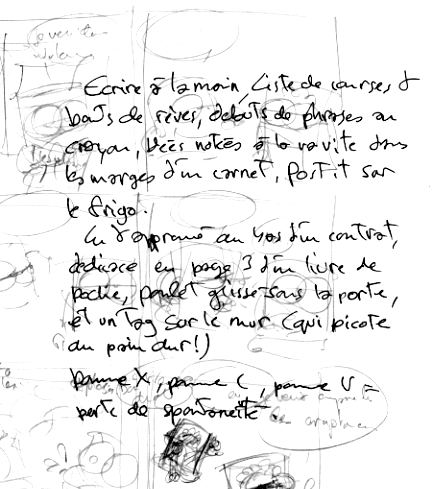 Ecrire à la main, Liste de courses &
bouts de rêves, débuts de phrases au
crayon, idées notées à la va vite dans
les marges d'un carnet, Post it sur
le frigo.
au dos d'un contrat,
dédicace en page 3 d'un livre de
poche, poulet glissé sous la porte,
et un Tag sur le mur (qui picote
du pain dur!)
pomme X, pomme C, pomme V =
perte de spontanéité